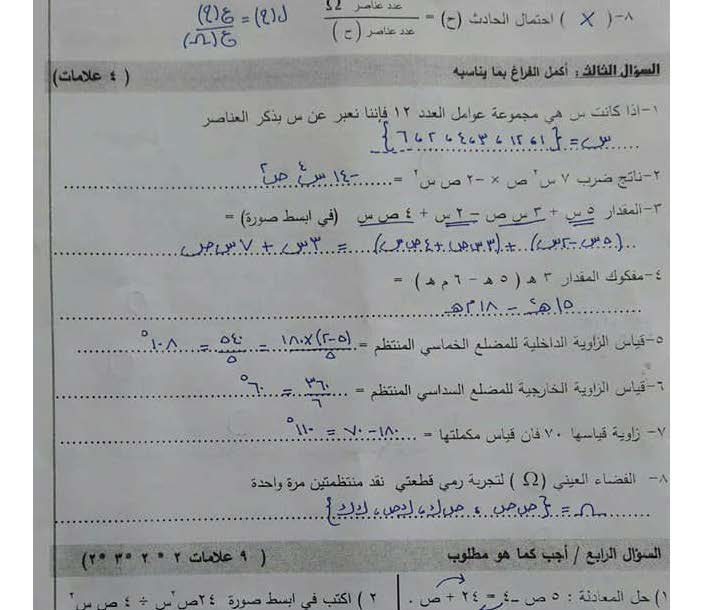 ٨-( X ) احتمال الحادث (ح) = عدد عناصر Ω / عدد عناصر (ح) ل(ع) = ع(ع) / ع(Ω)
السؤال الثالث: أكمل الفراغ بما يناسبه ( ٤ علامات)
١-اذا كانت س هي مجموعة عوامل العدد ١٢ فإننا نعبر عن س بذكر العناصر
س = {١ ، ١٢ ، ٣ ، ٤ ، ٢ ، ٦}
٢-ناتج ضرب ٧ س٢ ص × -٢ ص س٢ = -١٤ س٤ ص٢
٣-المقدار ٥ س + ٣ س ص – ٢ س + ٤ ص س (في ابسط صورة) =
(٥س-٢س) + (٣س ص+٤ص س) = ٣س + ٧س ص
٤-مفكوك المقدار ٣ هـ ( ٥ هـ - ٦ م هـ ) =
١٥هـ٢ - ١٨م هـ
٥-قياس الزاوية الداخلية للمضلع الخماسي المنتظم = (٥-٢)×١٨٠ / ٥ = ٥٤٠ / ٥ = ١٠٨°
٦-قياس الزاوية الخارجية للمضلع السداسي المنتظم = ٣٦٠ / ٦ = ٦٠°
٧- زاوية قياسها ٧٠ فان قياس مكملتها = ١٨٠-٧٠ = ١١٠°
٨- الفضاء العيني (Ω) لتجربة رمي قطعتي نقد منتظمتين مرة واحدة
Ω = {ص ص ، ص ك ، ك ص ، ك ك}
السؤال الرابع / أجب كما هو مطلوب ( ٩ علامات ٢ * ٢ * ٣ * ٢)
١) حل المعادلة : ٥ ص – ٤ = ٢٤ + ص .
٢ ) اكتب في ابسط صورة ٢٤ص٢س ÷ ٤ ص س٢